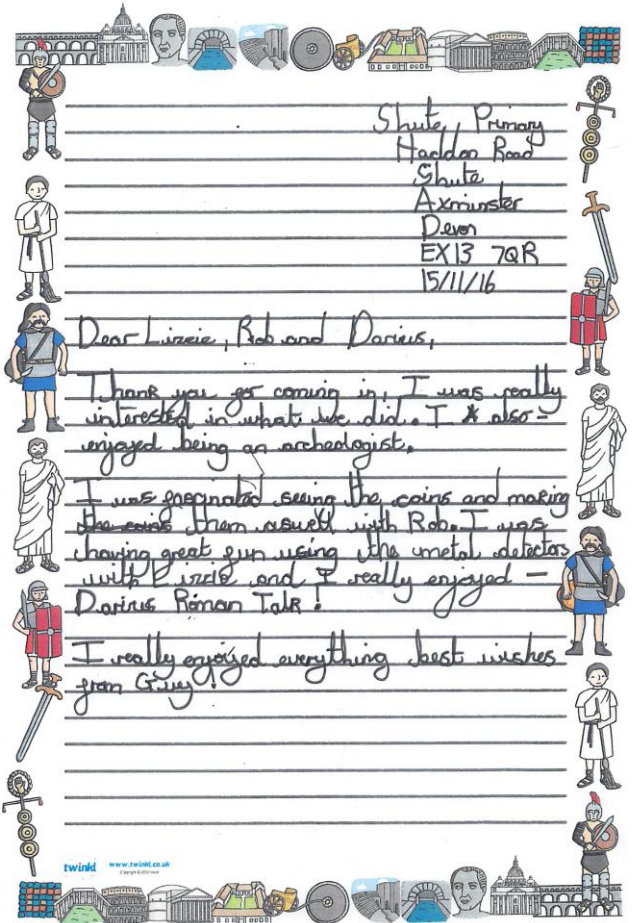 Shute Primary
Haddon Road
Shute
Axminster
Devon
EX13 7QR
15/11/16
Dear Lizzie, Rob and Darius,
Thank you for coming in, I was really
interested in what we did. I also -
enjoyed being an archeologist.
I was fascinated seeing the coins and making
the coins them aswell with Rob. I was
having great fun using the metal detectors
with Lizzie and I really enjoyed -
Darius Roman Talk!
I really enjoyed everything best wishes
from Guy!
twinkl www.twinkl.co.uk